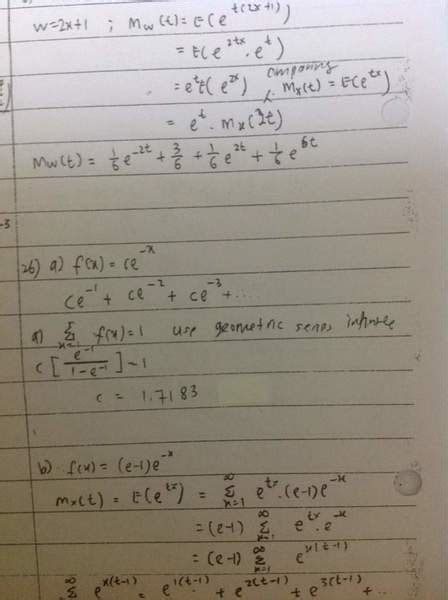 W=2x+1 ; Mw(t) = E(e^t(2x+1))
= E(e^2tx . e^t)
= e^t E(e^2x) comparing
Mx(t) = E(e^tx)
= e^t . Mx(2t)
Mw(t) = 1/6 e^-2t + 3/6 + 1/6 e^2t + 1/6 e^6t
-3
26) a) f(x) = ce^-x
ce^-1 + ce^-2 + ce^-3 + ....
a) Σ x=1 f(x)=1 use geometric series infinite
c[e^-1/1-e^-1] = 1
c = 1.7183
b). f(x) = (e-1)e^-x
Mx(t) = E(e^tx) = ∞ Σ x=1 e^tx . (e-1)e^-x
= (e-1) ∞ Σ x=1 e^tx . e^-x
= (e-1) ∞ Σ x=1 e^x(t-1)
∞ Σ e^x(t-1) = e^1(t-1) + e^2(t-1) + e^3(t-1) + ...